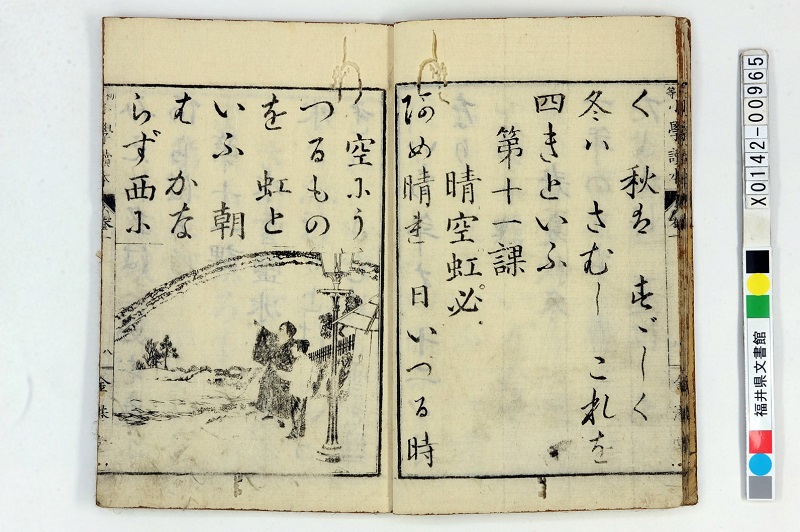 く 秋は すゞしく
冬ハ さむし これを
四きといふ
第十一課
晴空虹必
あめ晴れ 日いづる時
空にう
つるもの
を 虹と
いふ 朝
むかな
らず西に
小學讀本
卷一
八
小學讀本
X0142-00965
福井県文書館